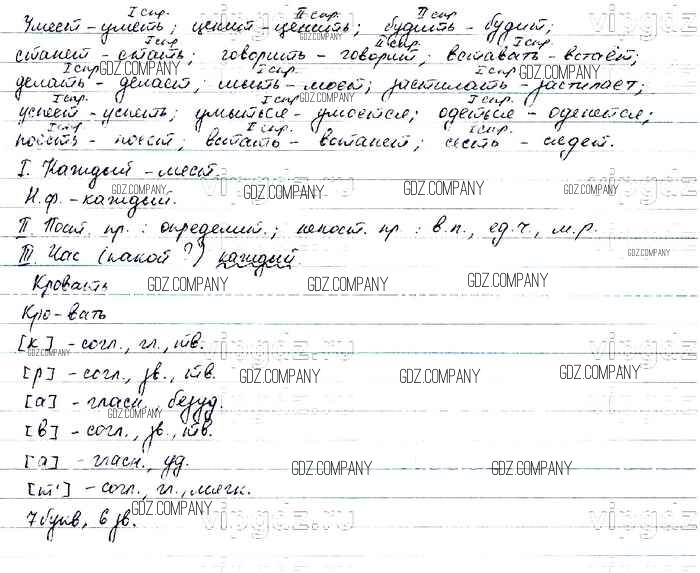 I спр. II спр. II спр.
Умеет - уметь; ценит - ценить; будить - будит;
I спр. II спр. I спр.
станет - стать; говорить - говорит; вставать - встаёт;
I спр. I спр. I спр.
делать - делает; мыть - моет; застилать - застилает;
I спр. I спр. I спр.
успеет - успеть; умыться - умоется; одеться - оденется;
I спр. I спр. I спр.
поесть - поест; встать - встанет; сесть - сядет.
I. Каждый - мест.
Н.ф. - каждый.
II. Пост. пр.: определит.; непост. пр: в.п., ед.ч., м.р.
III. Час (какой?) каждый.
Кровать
Кро-вать
[к] - согл., гл., тв.
[р] - согл., зв., тв.
[а] - гласн., безуд.
[в] - согл., зв., тв.
[а] - гласн., уд.
[т'] - согл., гл., мягк.
7 букв, 6 зв.
GDZ.COMPANY
vipgdz.ru